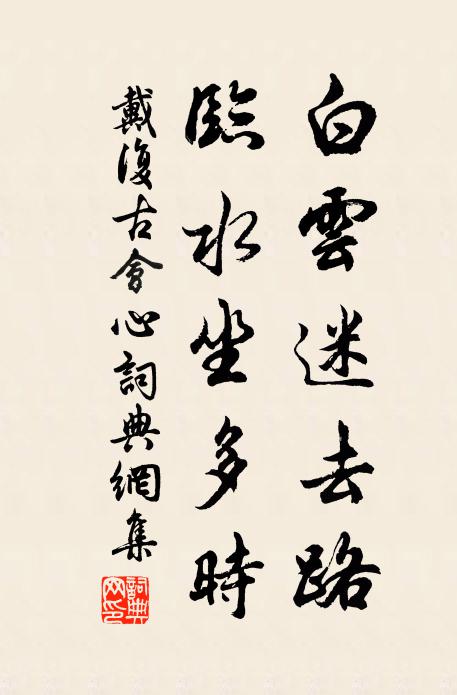 白雲迷去路
臨水坐多時
戴復古會心詞典網集
詞典網印